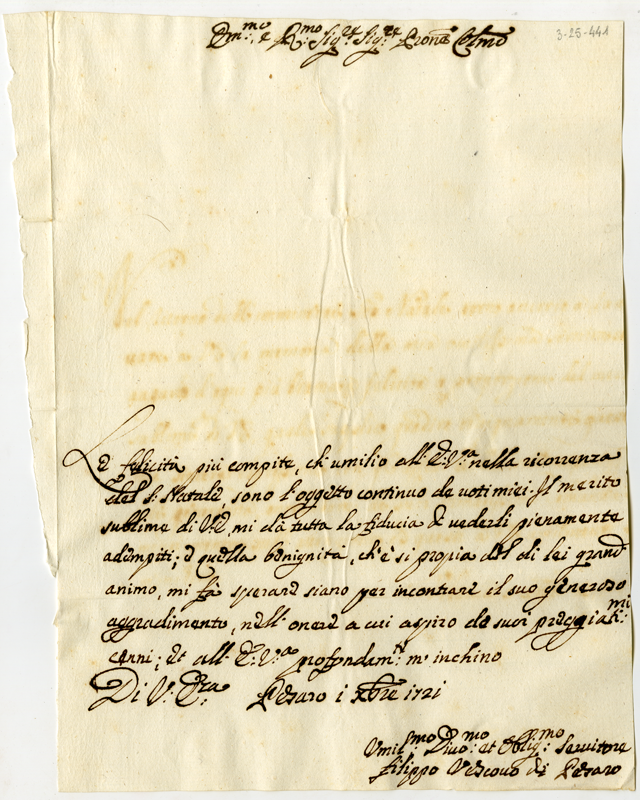 Em.mo e R.mo Sig.re Sig.re Prone Colmo
3-25-441
Le felicità più compite, ch'umilio all'E: V.a nella ricorrenza
del S. Natale, sono l'oggetto continuo de voti miei. Il merito
sublime di V: E, mi dà tutta la fiducia di vederli pienamente
adempiti; e quella benignità, ch'è si propria del di lei grand'
animo, mi fà sperare siano per incontrare il suo generoso
aggradimento, nell'onore a cui aspiro de suoi preggiati.mi
cenni; et all'E: V.a profondam.te m'inchino
Di V: E.za Pesaro i Xbre 1721
Umil.mo Divo.mo et Oblig.mo Servitore
Filippo Vescovo di Pesaro